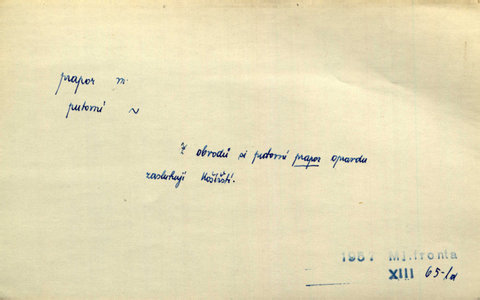 prapor m.
putovní ~
Z obvodů si putovní prapor opravdu
zaslouží Košířští.
1957 Ml.fronta
XIII 65-1a